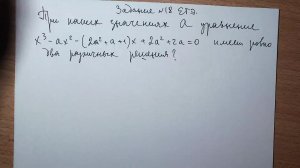 Задание №18 ЕГЭ.
При каких значениях a уравнение
x³-ax²-(2a²+a+1)x+2a²+2a=0 имеет ровно
два различных решения?